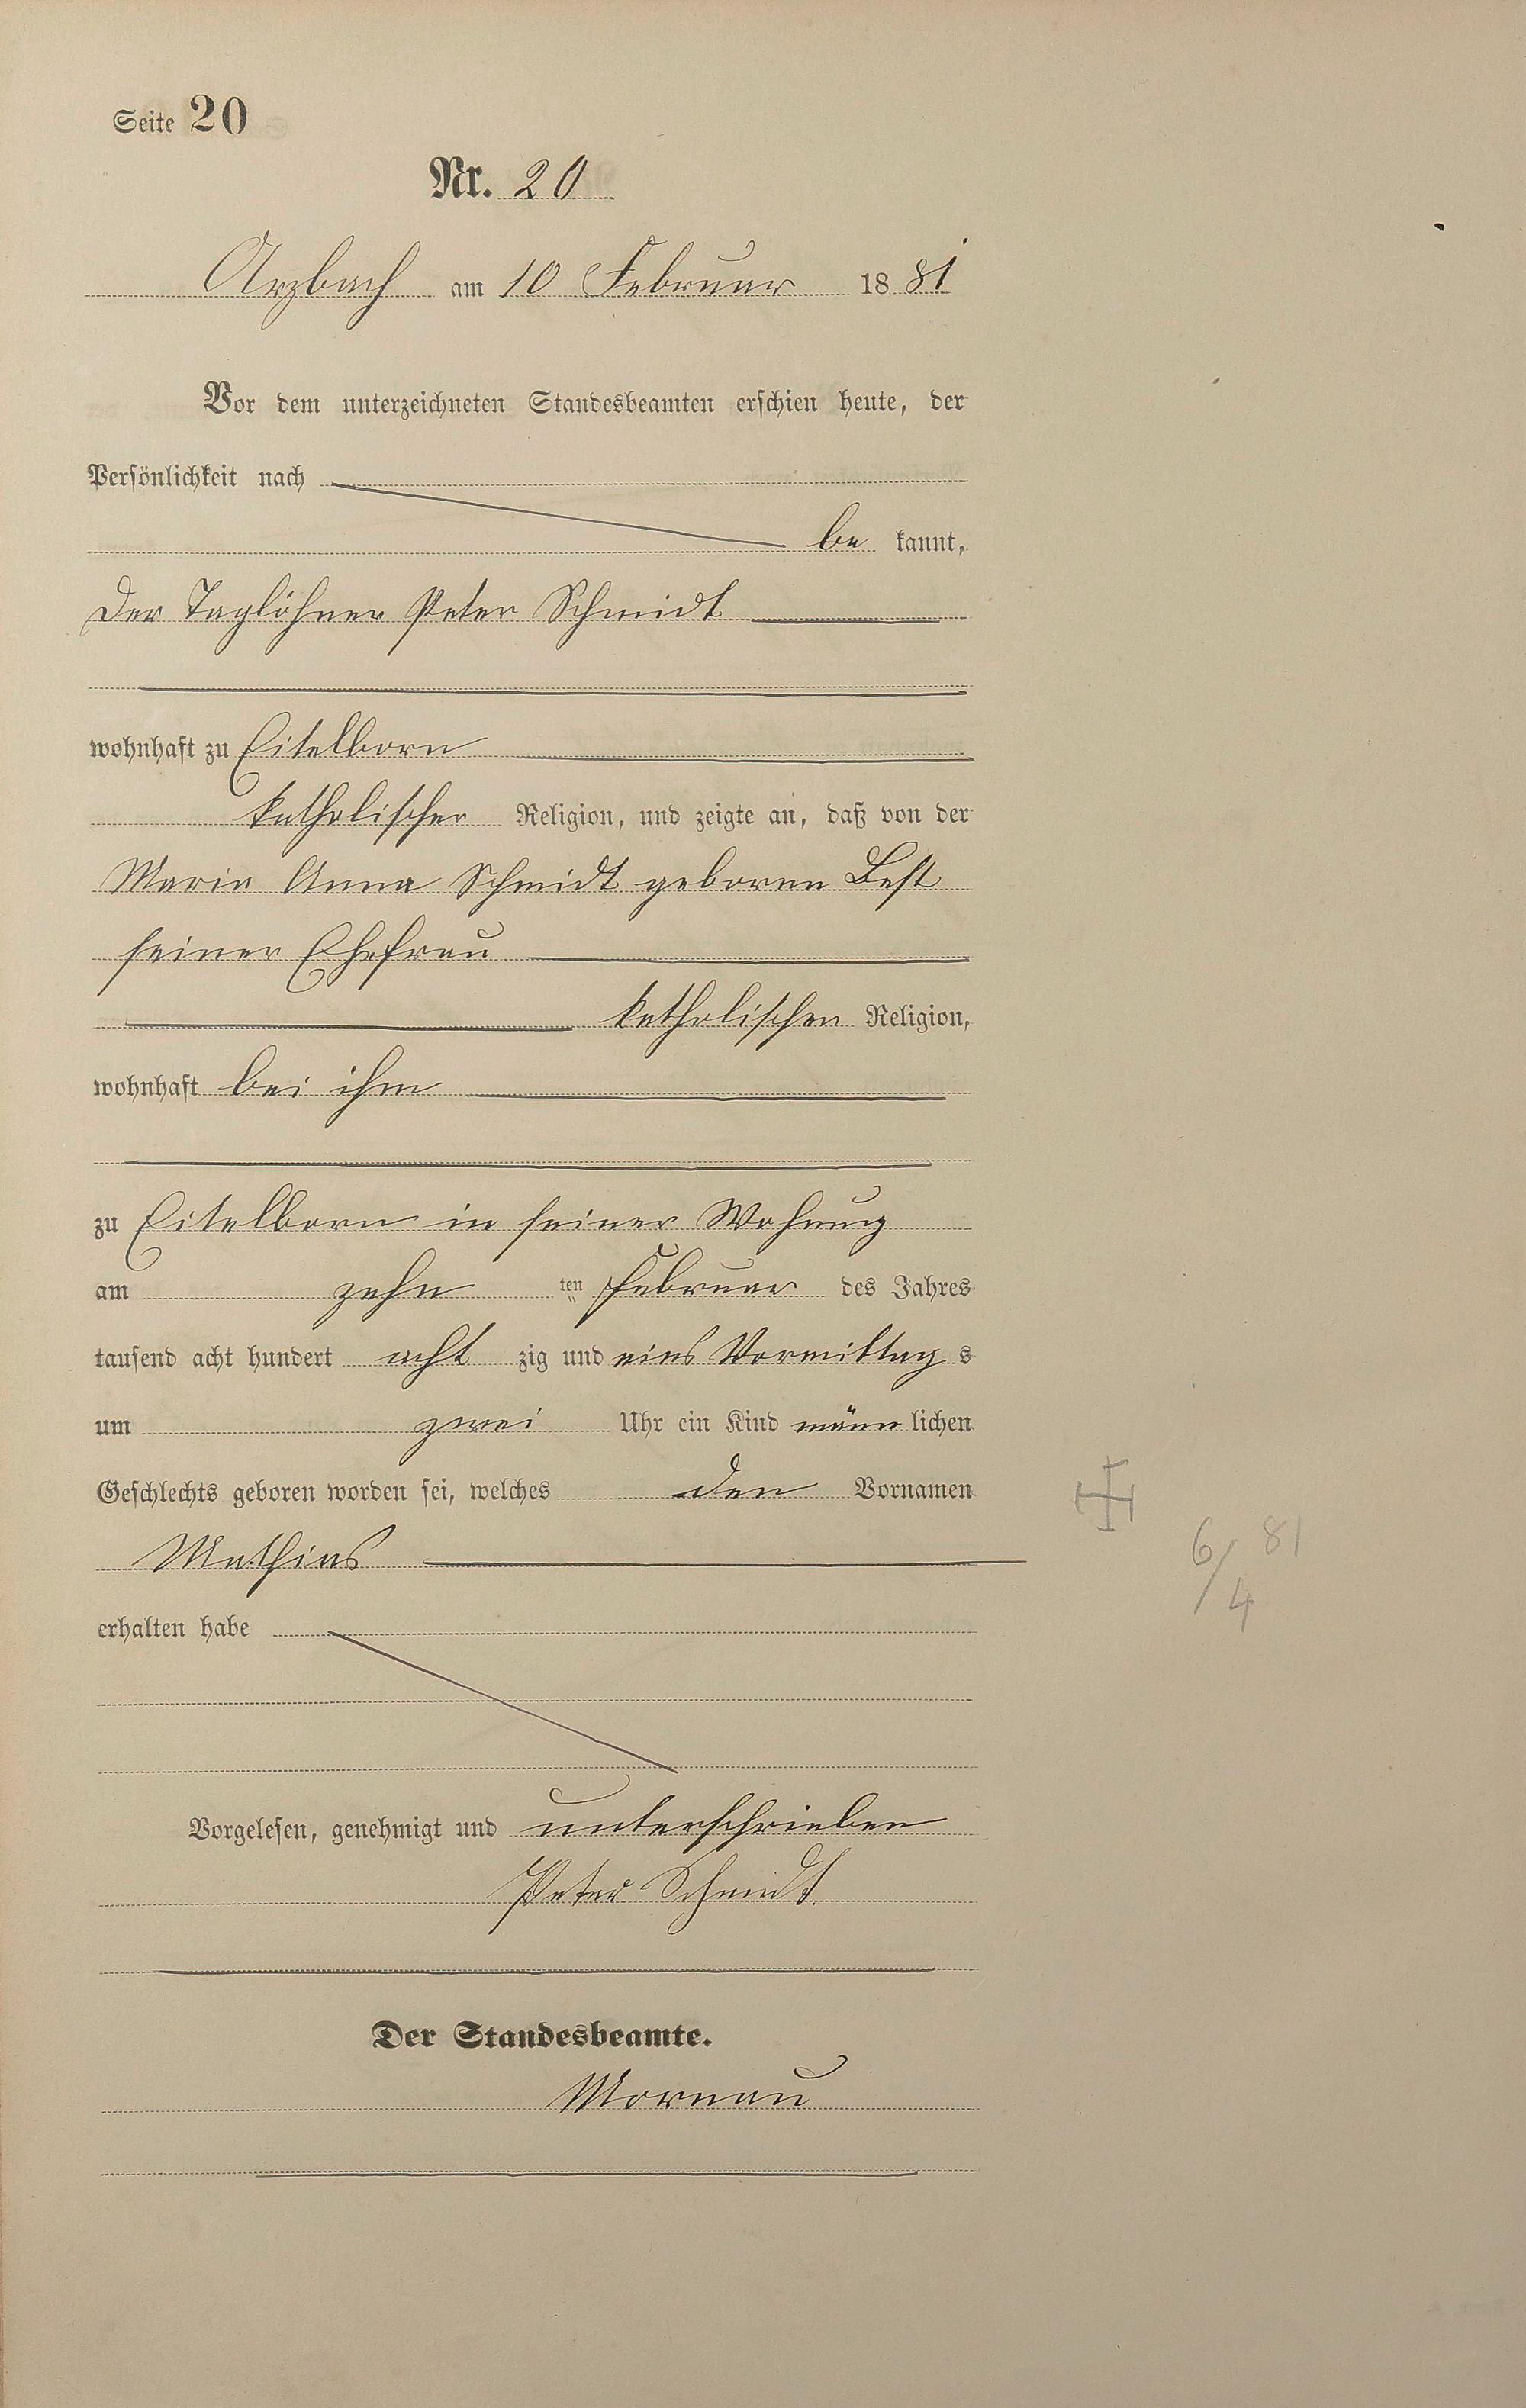 Seite 20
Nr. 20
Arzbach am 10 Februar 1881
Vor dem unterzeichneten Standesbeamten erschien heute, der
Persönlichkeit nach
be kannt,
der Taglöhner Peter Schmidt
wohnhaft zu Eitelborn
katholischer Religion, und zeigte an, daß von der
Maria Anna Schmidt geborene Best
seiner Ehefrau
katholischen Religion,
wohnhaft bei ihm
zu Eitelborn in seiner Wohnung
am zehn ten Februar des Jahres
tausend acht hundert acht zig und eins Vormittag s
um zwei Uhr ein Kind männ lichen
Geschlechts geboren worden sei, welches den Vornamen
Mathias
6/4 81
erhalten habe
Vorgelesen, genehmigt und unterschrieben
Peter Schmidt
Der Standesbeamte.
Mornau